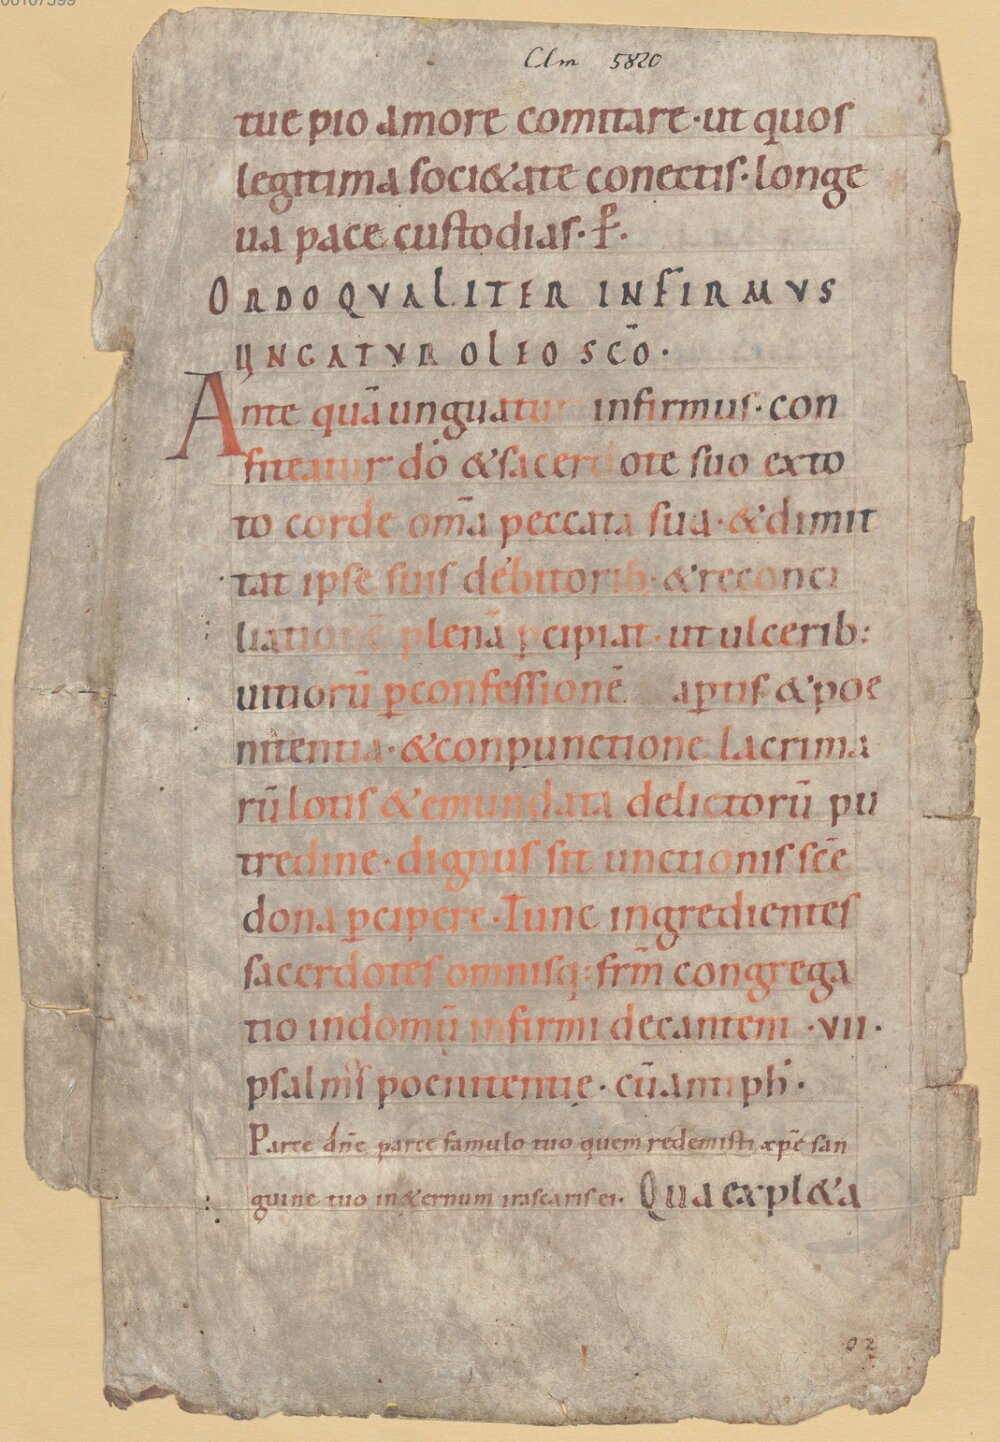 00107599
Clm 5820
tuę pio amore comitare · ut quos
legitima soci&ate conectis · longe
ua pace custodias · P̄.
ORDO QVALITER INFIRMVS
UNGATVR OLEO SCŌ ·
Ante quā unguatur infirmus · con
fiteatur dō & sacerdote suo exto
to corde om̄a peccata sua · & dimit
tat ipse suis debitorib; & reconci
liationē plenā ꝑcipiat · ut ulcerib;
uitiorū ꝑ confessionē aꝑtis & poe
nitentia · & conpunctione lacrima
rū lotis & emundata delictorū pu
tredine · dignus sit unctionis scē
dona ꝑcipere · Tunc ingredientes
sacerdotes omnisq; frm̄ congrega
tio in domū infirmi decantent · vii ·
psalmos poenitentię · cū antiph ·
Parce dn̄e parce famulo tuo quem redemisti xp̄e san
guine tuo in &ernum irascaris ei · Qua expl&a